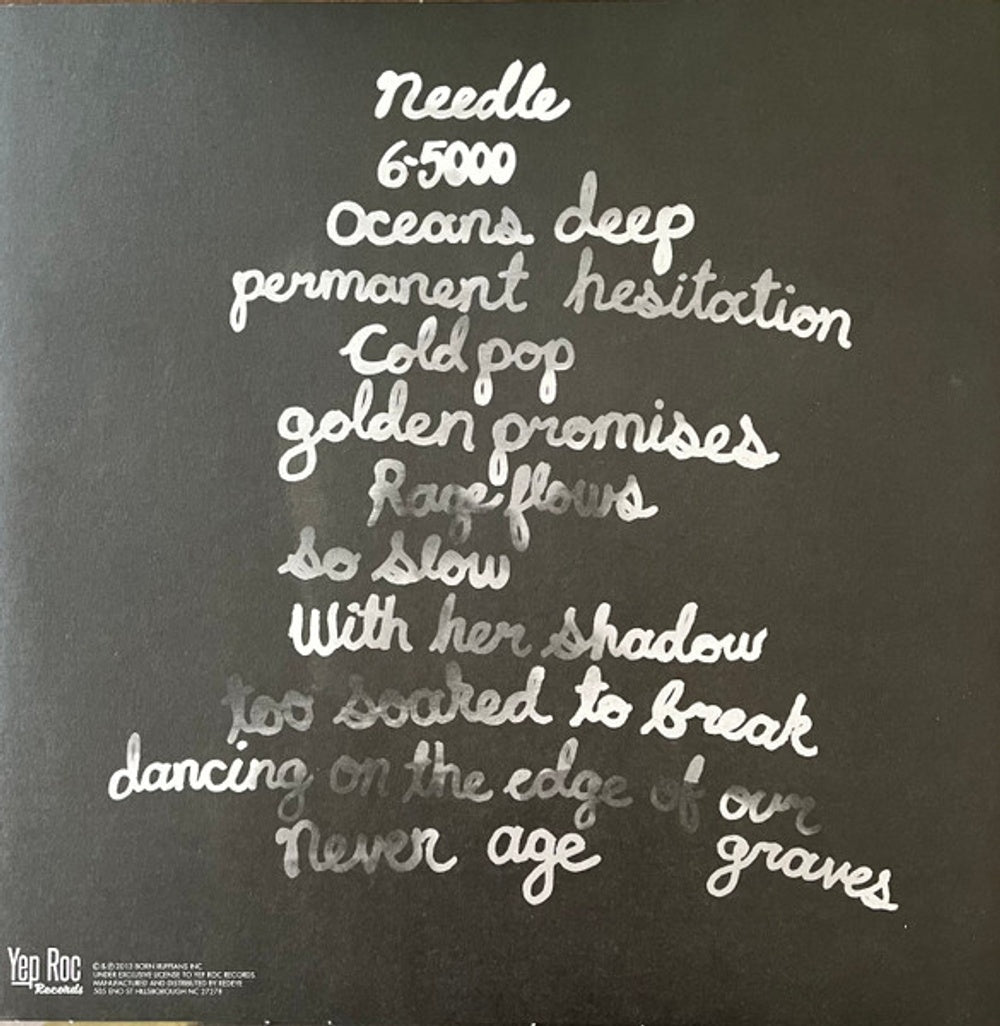 Needle
6-5000
Oceans deep
permanent hesitation
Cold pop
golden promises
Rage flows
so slow
With her shadow
too soaked to break
dancing on the edge of our
Never age graves
Yep Roc
Records
© & ℗ 2013 BORN RUFFIANS INC.
UNDER EXCLUSIVE LICENSE TO YEP ROC RECORDS.
MANUFACTURED AND DISTRIBUTED BY REDEYE
505 ENO ST HILLSBOROUGH NC 27278